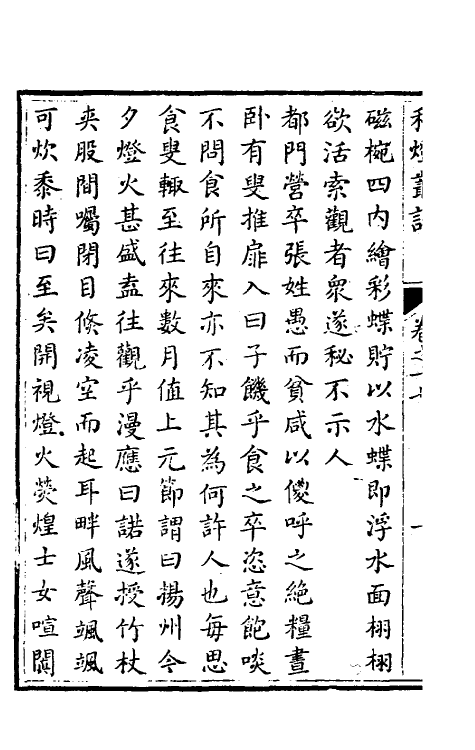 秋燈叢話
卷之十七
一
磁椀四内繪彩蝶貯以水蝶即浮水面栩栩
欲活索觀者衆遂秘不示人
都門營卒張姓愚而貧咸以儍呼之絶糧晝
卧有叟推扉入曰子饑乎食之卒恣意飽啖
不問食所自來亦不知其為何許人也每思
食叟輒至往來數月值上元節謂曰揚州今
夕燈火甚盛盍往觀乎漫應曰諾遂授竹杖
夾股間囑閉目倏凌空而起耳畔風聲颯颯
可炊黍時曰至矣開視燈火熒煌士女喧闐